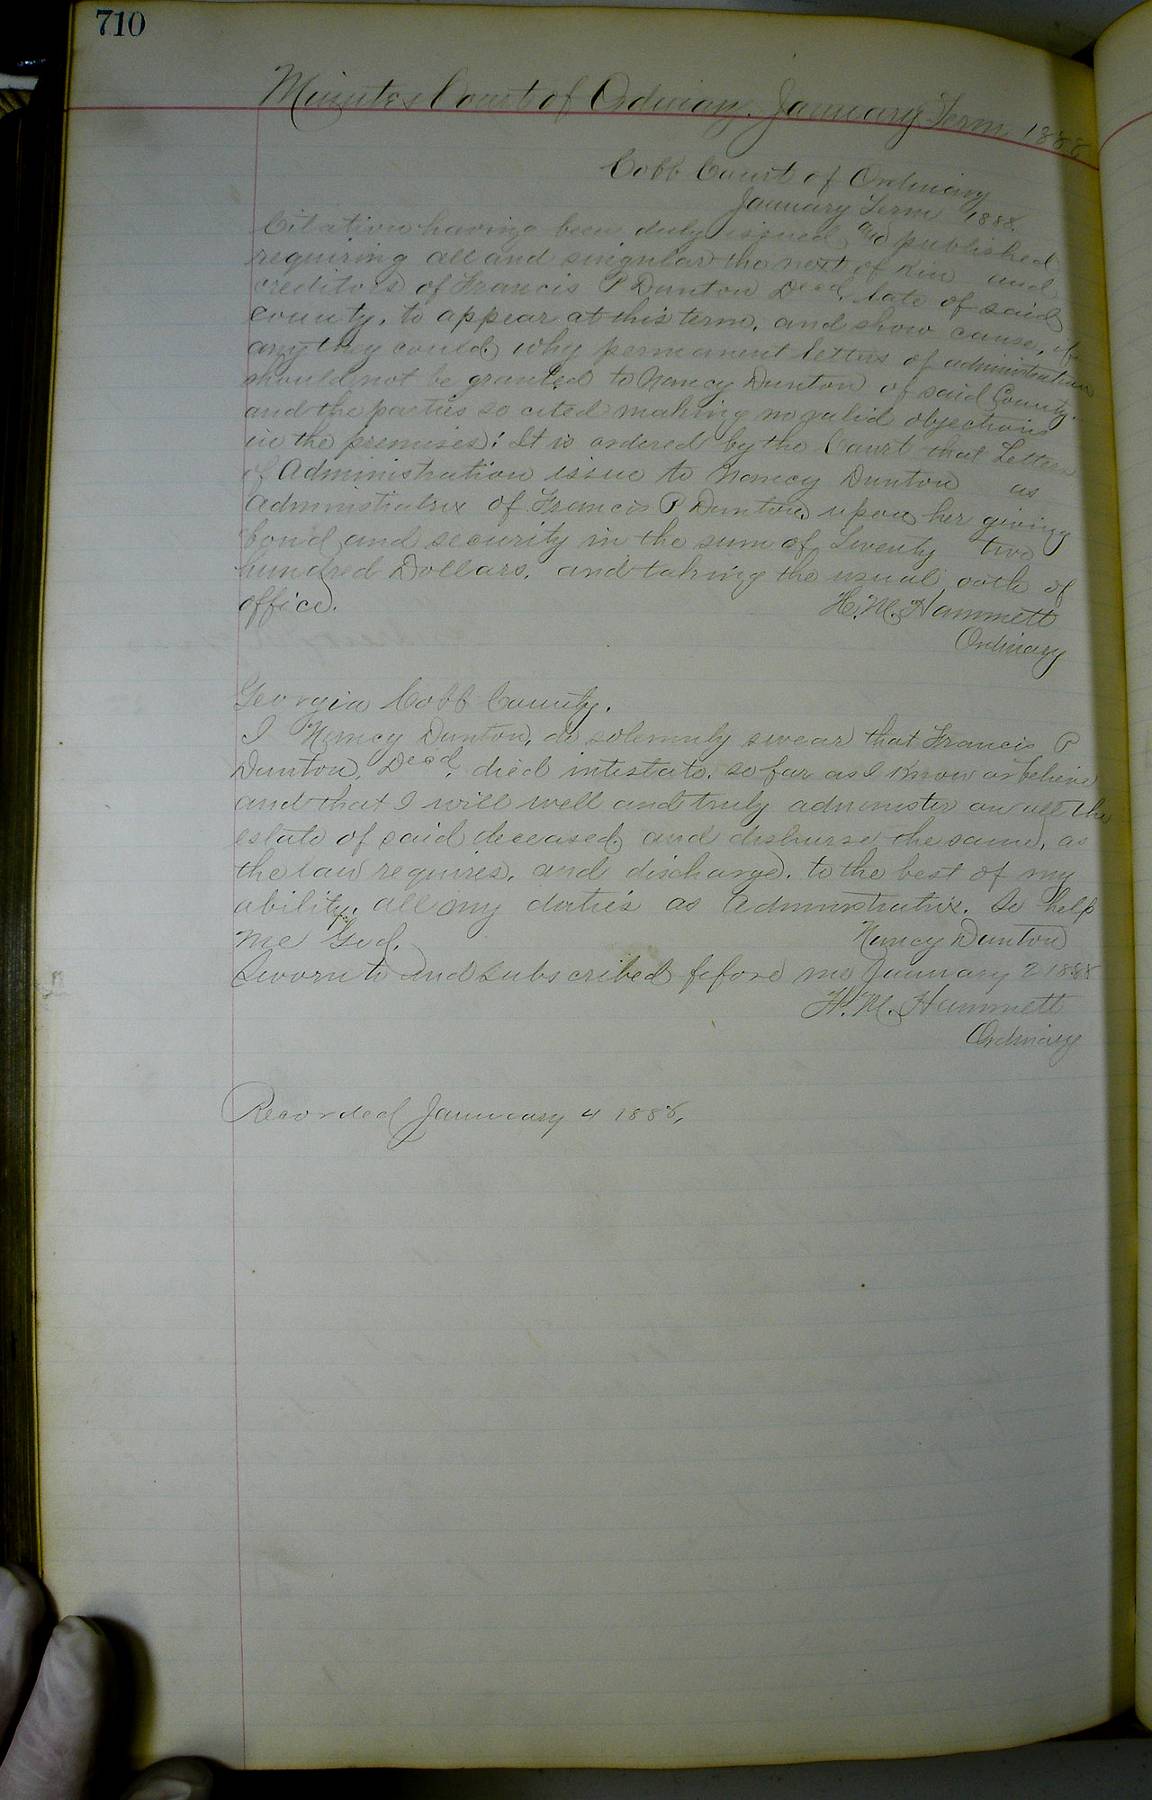 710
Minutes Court of Ordinary, January Term 1888
Cobb Court of Ordinary
January Term 1888.
Citation having been duly issued and published
requiring all and singular the next of Kin and
creditors of Francis P Dunton Decd, late of said
county, to appear at this term, and show cause, if
any they could, why permanent letters of administration
should not be granted to Nancy Dunton of said County.
and the parties so cited making no valid objections
in the premises: It is ordered by the Court that Letters
of Administration issue to Nancy Dunton as
Administratrix of Francis P Dunton, upon her giving
bond and security in the sum of Twenty two
hundred Dollars, and taking the usual oath of
office.
H. M. Hammett
Ordinary
Georgia Cobb County.
I Nancy Dunton, do solemnly swear that Francis P
Dunton, Decd, died intestate, so far as I know or believe
and that I will well and truly administer on all the
estate of said deceased, and disburse the same, as
the law requires, and discharge, to the best of my
ability, all my duties as Administratrix. So help
me God.
Nancy Dunton
Sworn to and subscribed before me January 2 1888
H. M. Hammett
Ordinary
Recorded January 4 1888,